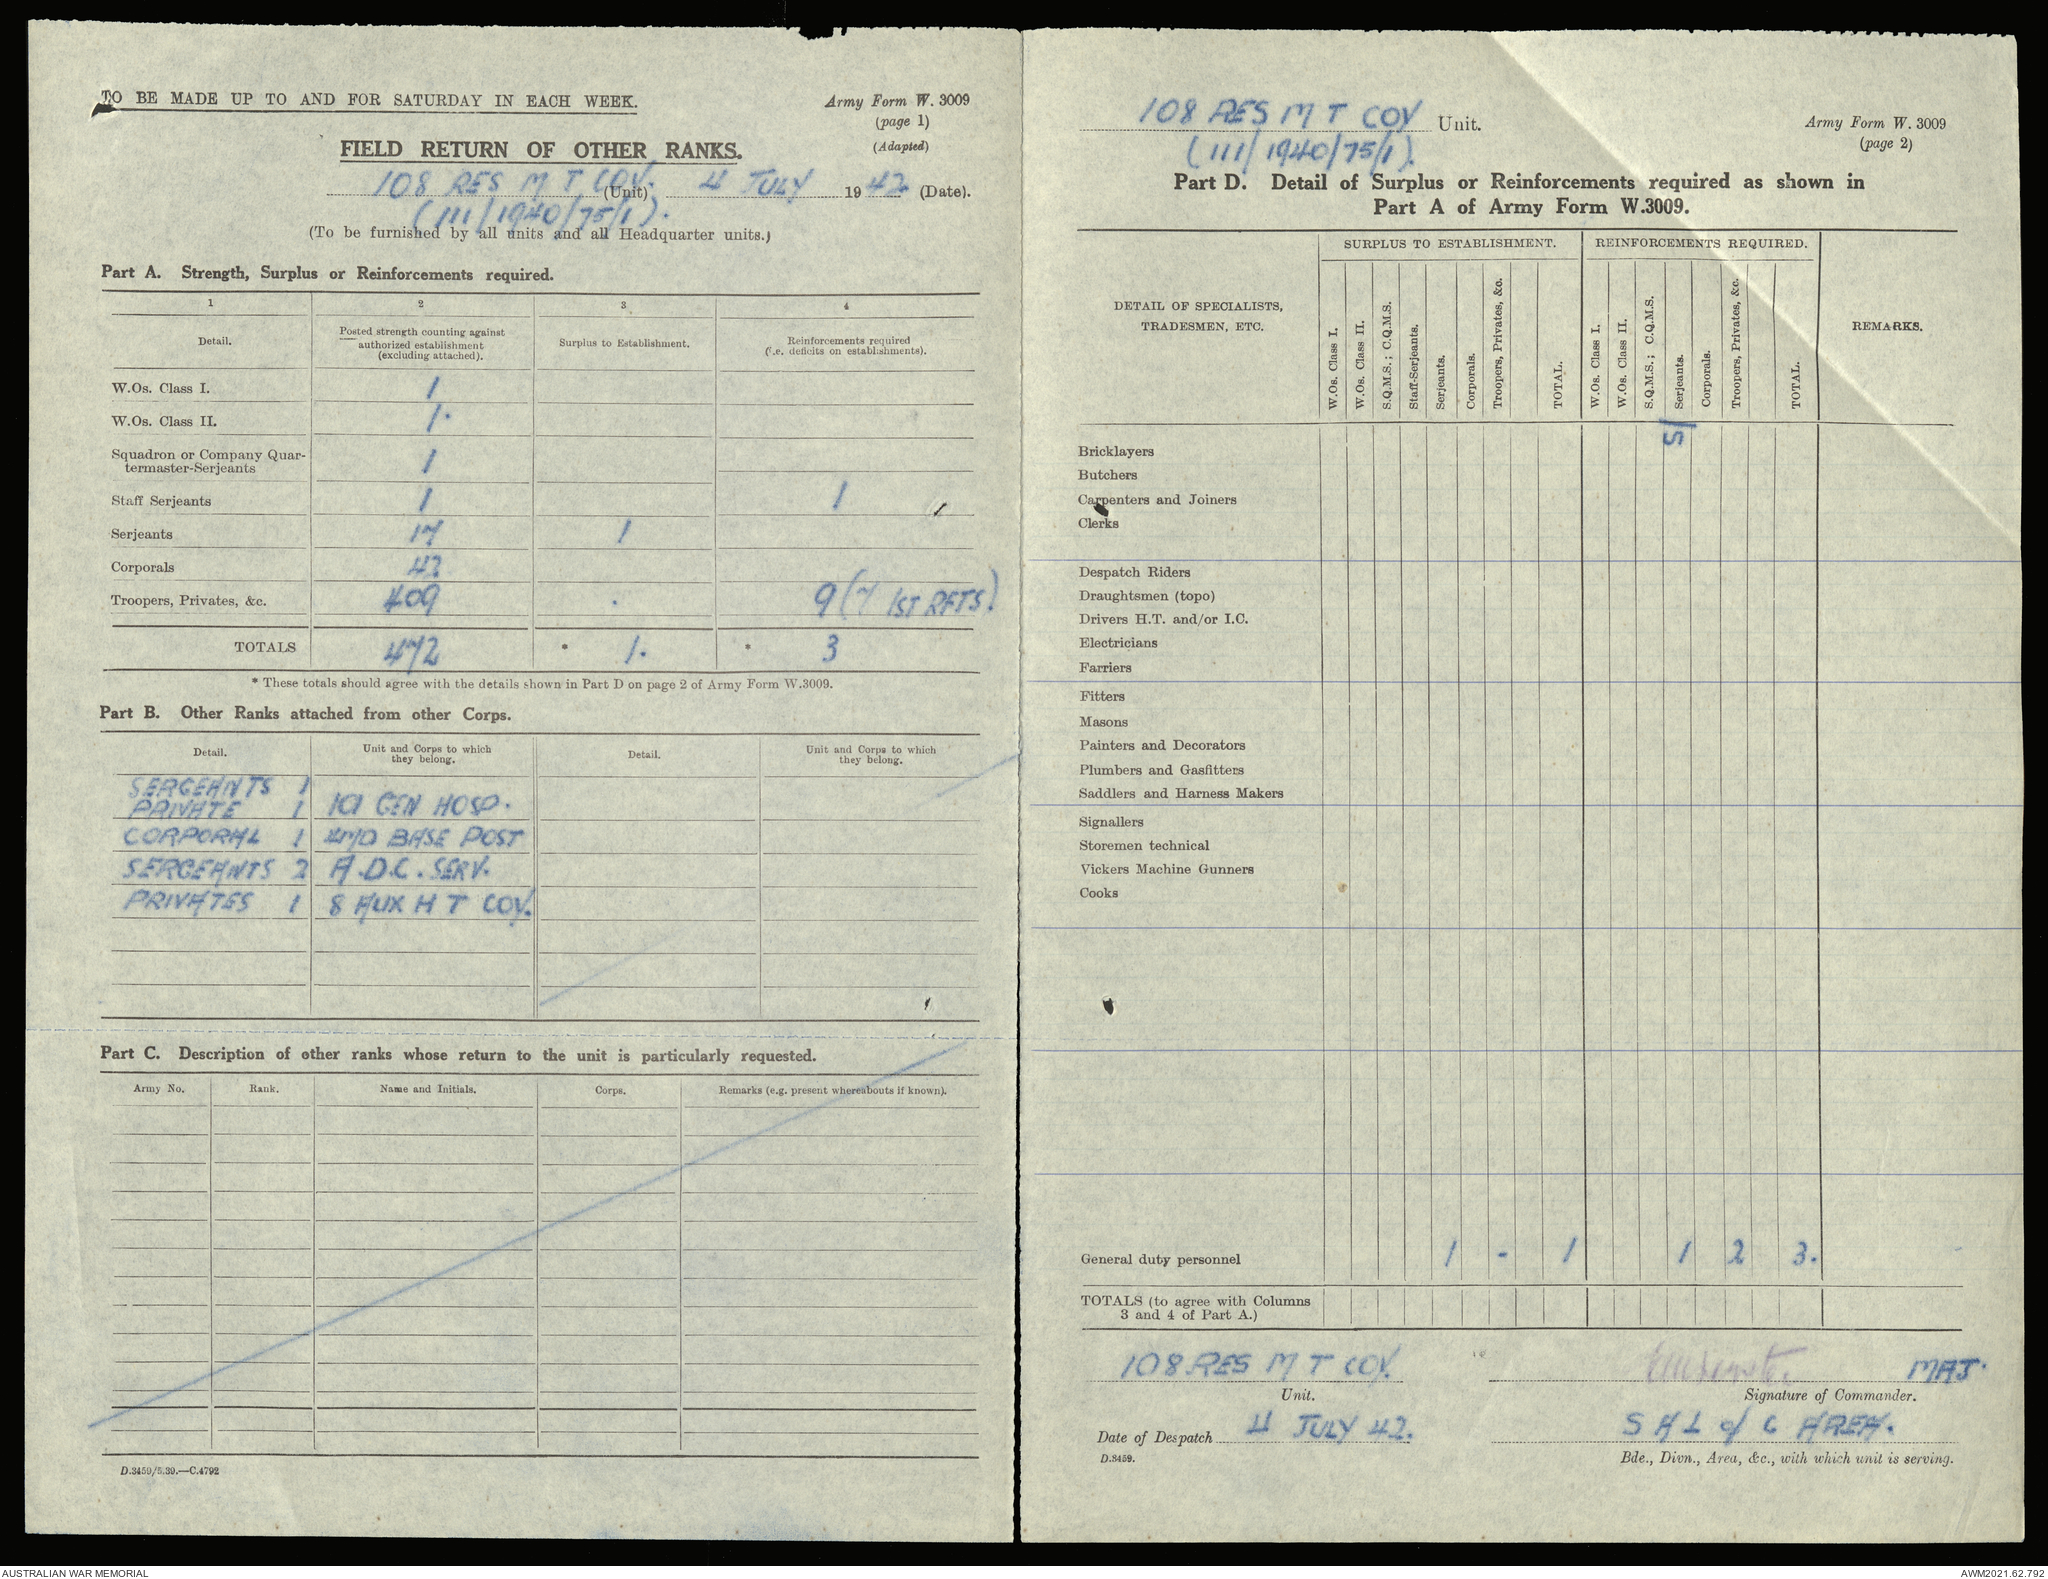 TO BE MADE UP TO AND FOR SATURDAY IN EACH WEEK.
Army Form W. 3009
(page 1)
(Adapted)
FIELD RETURN OF OTHER RANKS.
108 RES M T COY. (Unit) 4 JULY 1942 (Date).
(111/1940/75/1).
(To be furnished by all units and all Headquarter units.)
Part A. Strength, Surplus or Reinforcements required.
1 2 3 4
Detail. Posted strength counting against authorized establishment (excluding attached). Surplus to Establishment. Reinforcements required (i.e. deficits on establishments).
W.Os. Class I. 1
W.Os. Class II. 1.
Squadron or Company Quar-
termaster-Serjeants 1
Staff Serjeants 1 1
Serjeants 17 1
Corporals 42
Troopers, Privates, &c. 409 . 9 (7 1ST RFTS)
TOTALS 472 * 1. * 3
* These totals should agree with the details shown in Part D on page 2 of Army Form W.3009.
Part B. Other Ranks attached from other Corps.
Detail. Unit and Corps to which they belong. Detail. Unit and Corps to which they belong.
SERGEANTS 1
PRIVATE 1 101 GEN HOSP.
CORPORAL 1 BASE POST
SERGEANTS 2 A.D.C. SERV.
PRIVATES 1 8 AUX H T COY.
Part C. Description of other ranks whose return to the unit is particularly requested.
Army No. Rank. Name and Initials. Corps. Remarks (e.g. present whereabouts if known).
D.3459/5.39.—C.4792
108 RES M T COY Unit.
(111/1940/75/1).
Army Form W. 3009
(page 2)
Part D. Detail of Surplus or Reinforcements required as shown in
Part A of Army Form W.3009.
SURPLUS TO ESTABLISHMENT. REINFORCEMENTS REQUIRED.
DETAIL OF SPECIALISTS,
TRADESMEN, ETC.
W.Os. Class I. W.Os. Class II. S.Q.M.S.; C.Q.M.S. Staff-Serjeants. Serjeants. Corporals. Troopers, Privates, &c. TOTAL. W.Os. Class I. W.Os. Class II. S.Q.M.S.; C.Q.M.S. S/ Serjeants. Corporals. Troopers, Privates, &c. TOTAL.
REMARKS.
Bricklayers
Butchers
Carpenters and Joiners
Clerks
Despatch Riders
Draughtsmen (topo)
Drivers H.T. and/or I.C.
Electricians
Farriers
Fitters
Masons
Painters and Decorators
Plumbers and Gasfitters
Saddlers and Harness Makers
Signallers
Storemen technical
Vickers Machine Gunners
Cooks
General duty personnel 1 - 1 1 2 3.
TOTALS (to agree with Columns
3 and 4 of Part A.)
108 RES M T COY. MAJ.
Unit. Signature of Commander.
Date of Despatch 4 JULY 42. S A L of C AREA.
D.3459. Bde., Divn., Area, &c., with which unit is serving.
AUSTRALIAN WAR MEMORIAL AWM2021.62.792